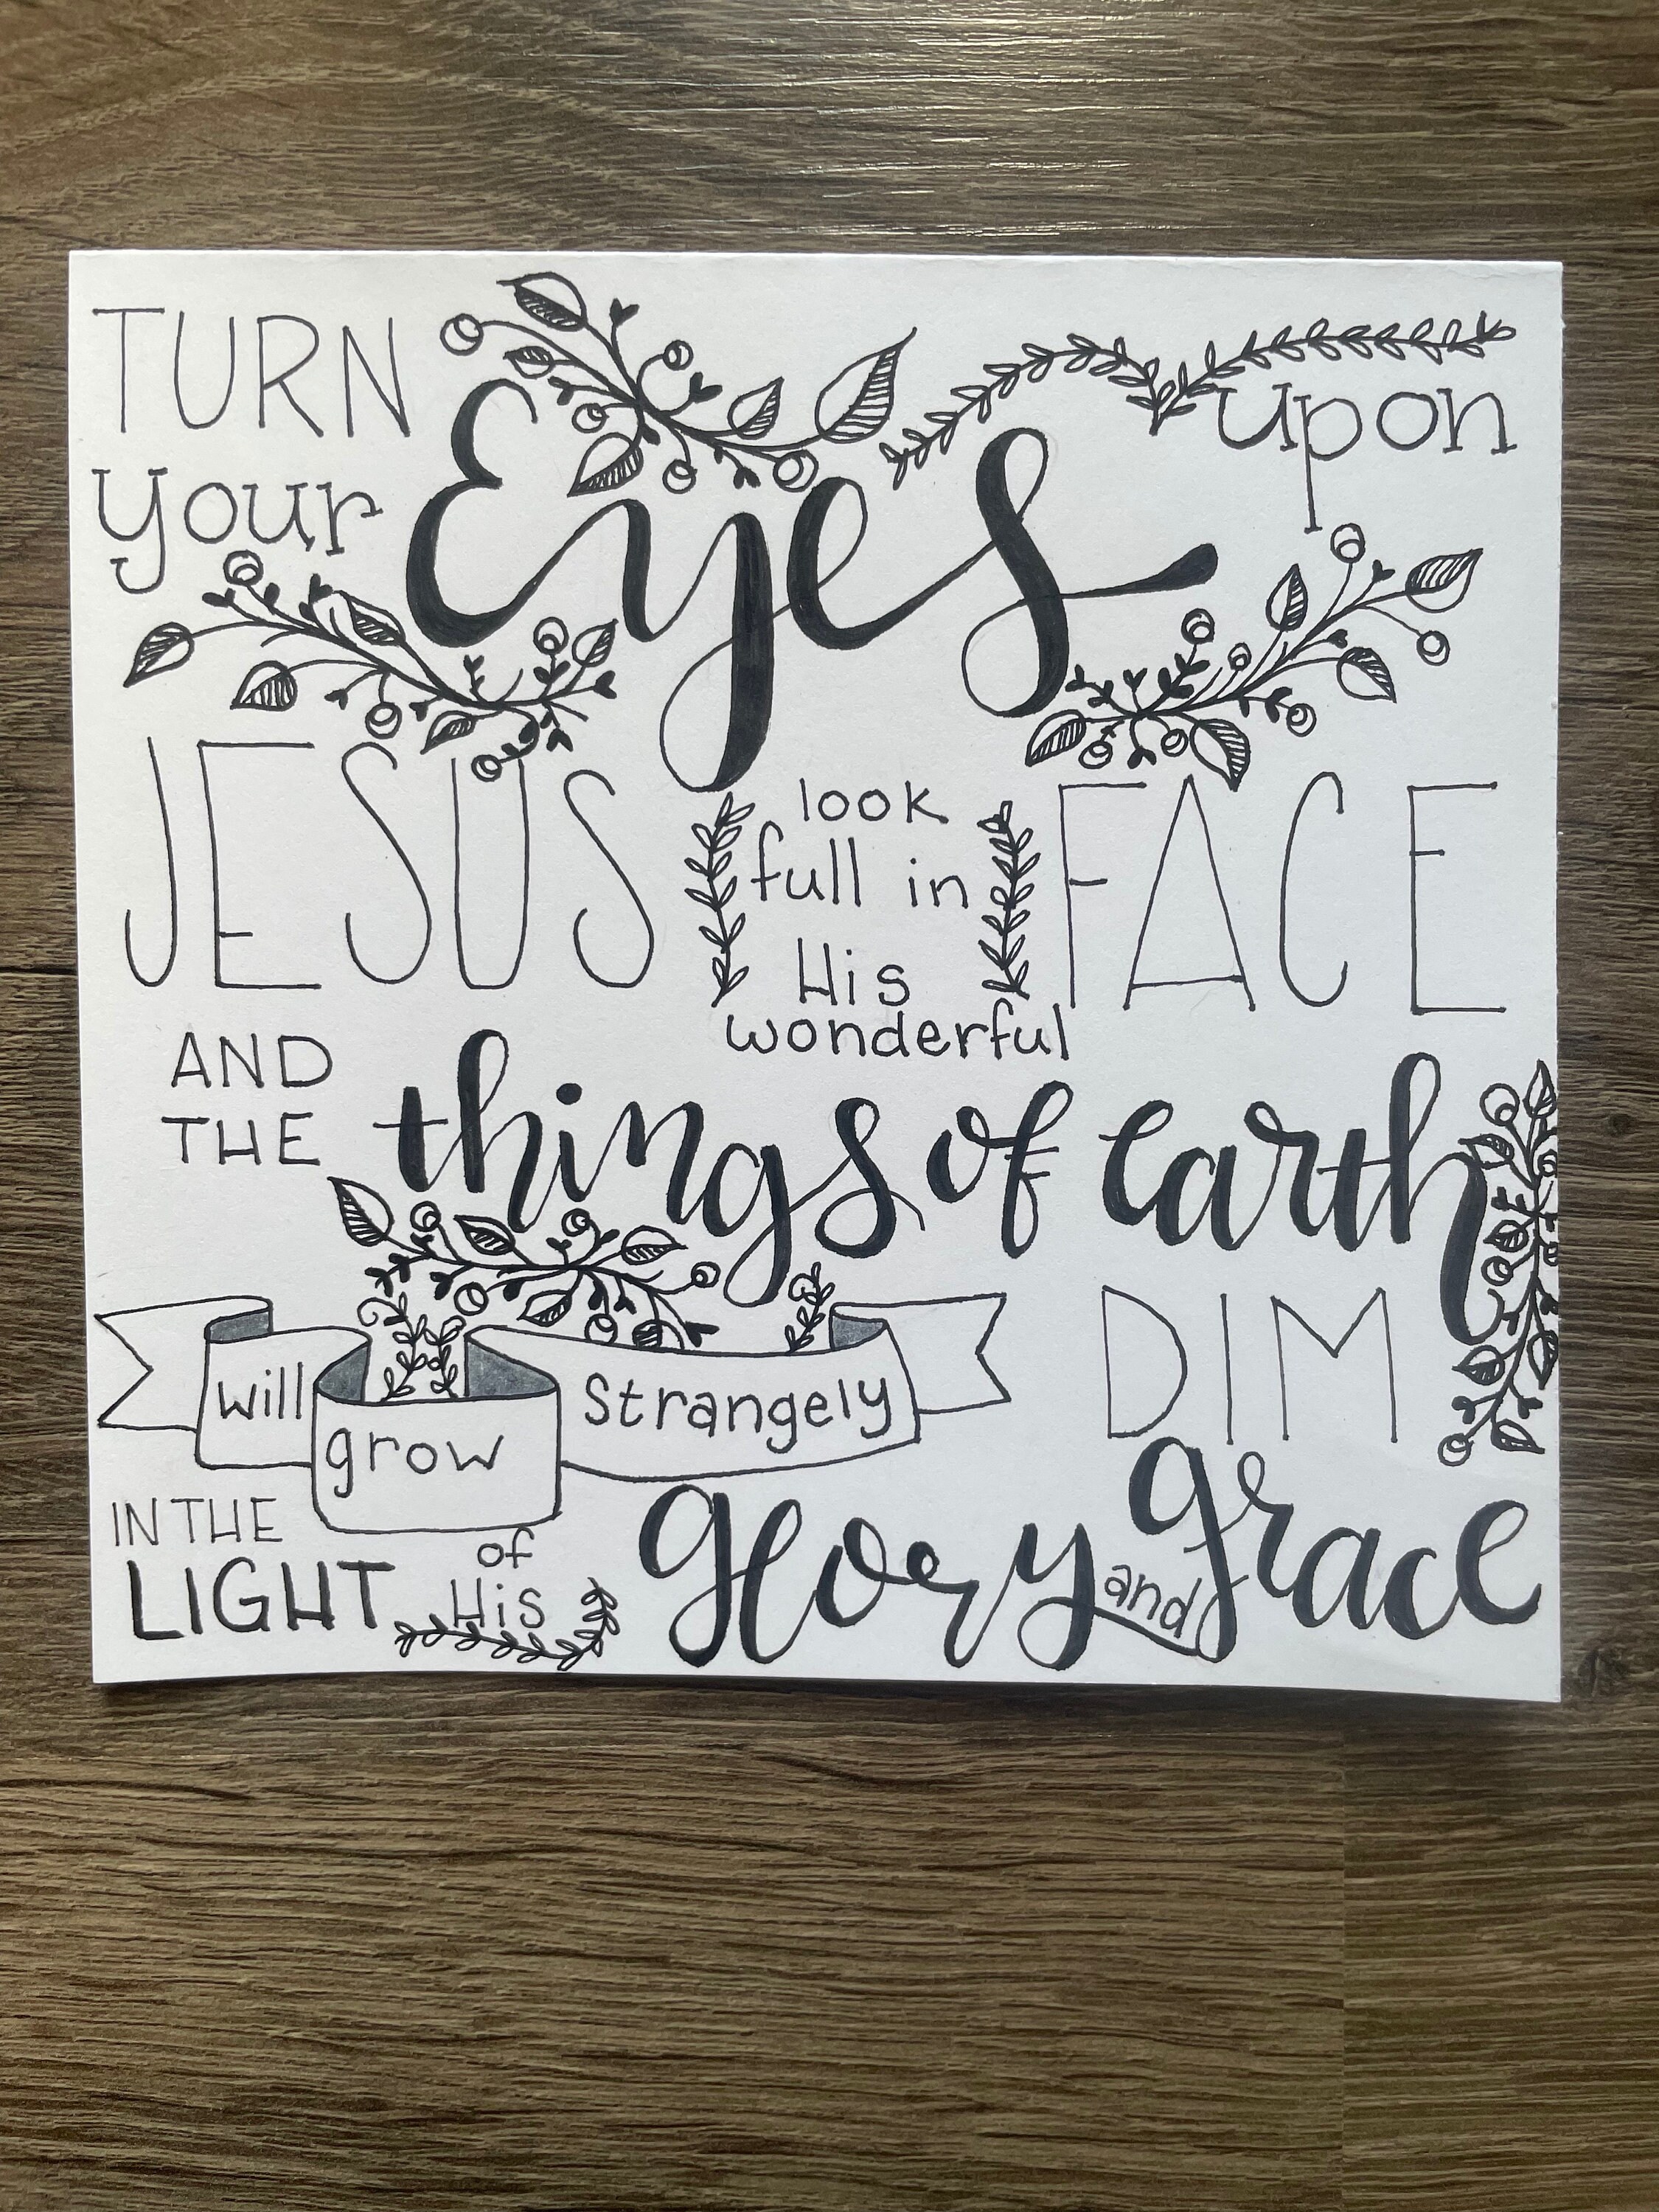 TURN
your Eyes upon
JESUS look full in His wonderful FACE
AND THE things of earth
will grow Strangely DIM
IN THE LIGHT of His glory and grace